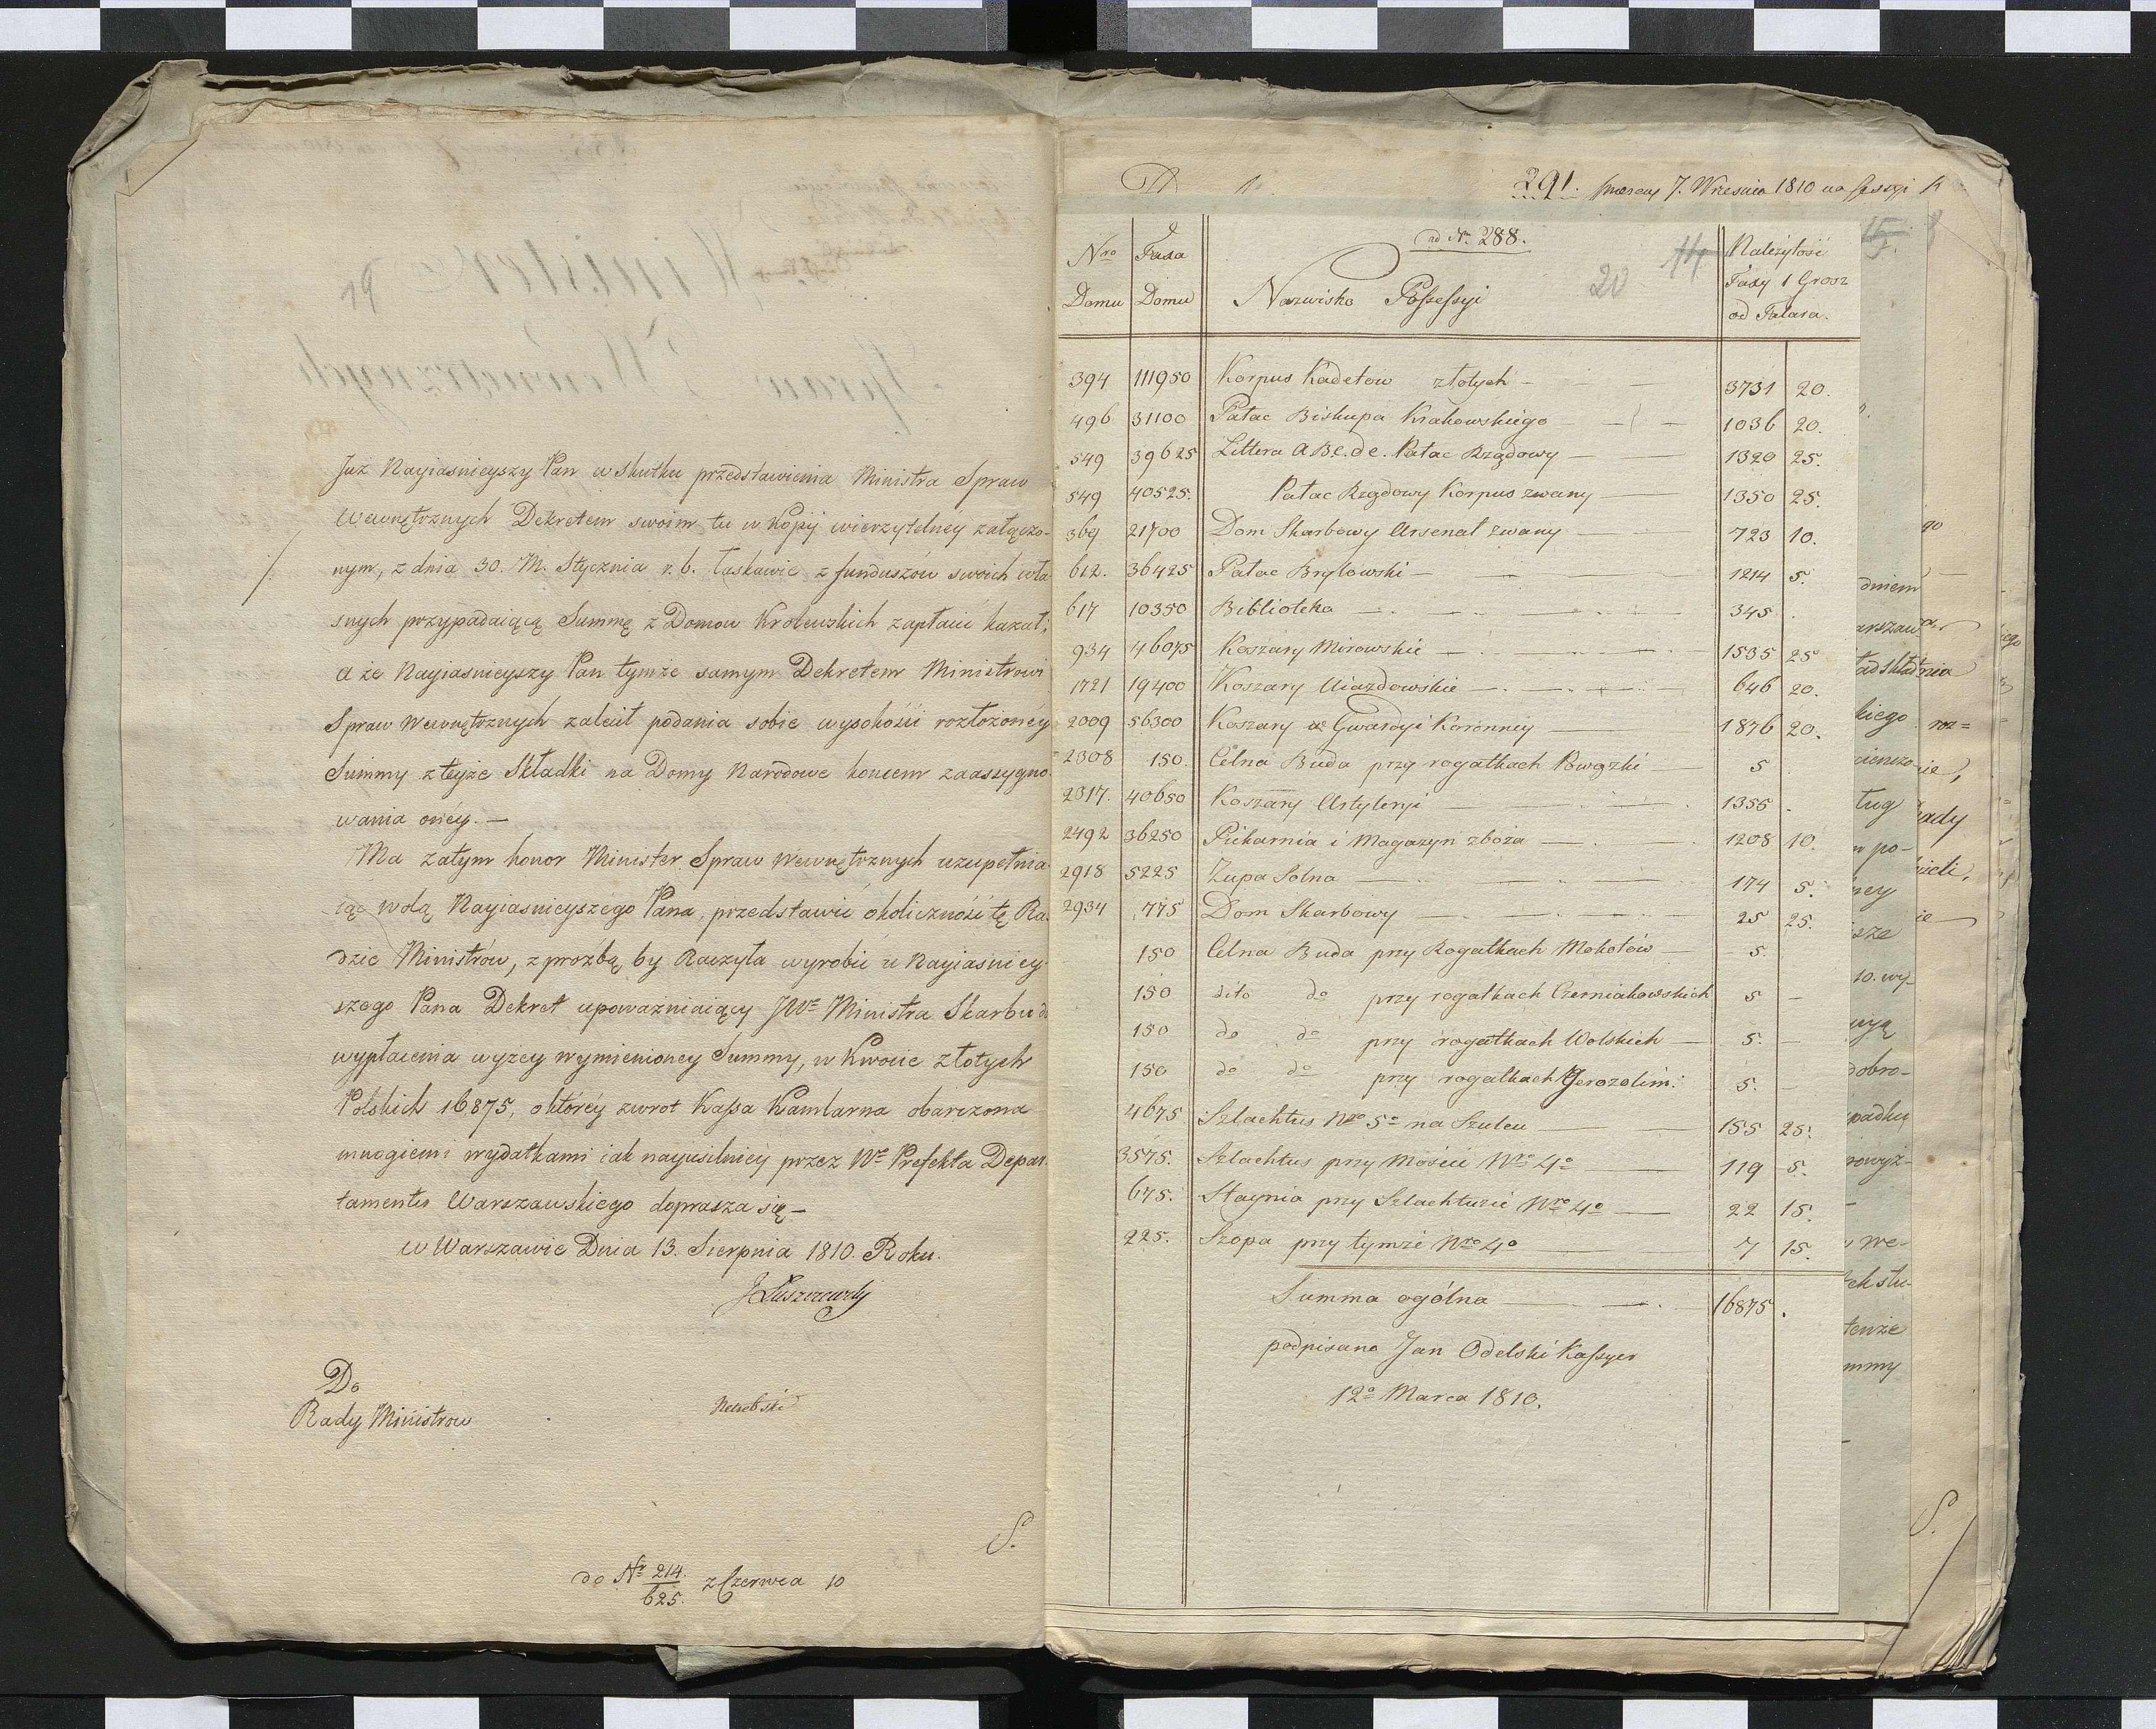 19
Już Nayiasnieyszy Pan w skutku przedstawienia Ministra Spraw
Wewnętrznych Dekretem swoim tu w Kopij wierzytelney załączo-
nym, z dnia 30. M. Stycznia r. b. łaskawie z funduszów swoich wła
snych przypadaiącą Summę z Domow Krolewskich zapłacić kazał;
a że Nayiasnieyszy Pan tymże samym Dekretem Ministrowi
Spraw Wewnętrznych zalecił podania sobie wysokości rozłożoney
Summy z teyże Składki na Domy Narodowe koncem zaassygno-
wania oney. —
Ma zatym honor Minister Spraw Wewnętrznych uzupełnia
iąc wolą Nayiasnieyszego Pana, przedstawić okoliczność tę Ra
dzie Ministrów, z prozbą by Raczyła wyrobić u Nayiasniey
szego Pana Dekret upoważniaiący JWo Ministra Skarbu do
wypłacenia wyżey wymienioney Summy, w Kwocie złotych
Polskich 16875, o ktorey zwrot Kassa Kamlarna obarczona
mnogiemi wydatkami iak nayusilniey przez Wo Prefekta Depar
tamentu Warszawskiego doprasza się —
w Warszawie Dnia 13. Sierpnia 1810. Roku.
J Łuszczewski
Do
Rady Ministrow
S.
do Nr 214. / 625. z Czerwca 10
291. 7. Wrzesnia 1810 na sessyi
ad Nm 288.
20 14
Nro Domu | Taxa Domu | Nazwisko Possessyi | Należytość Taxy 1 Grosz od Talara.
394 111950 Korpus Kadetow złotych — 3731 20.
496 31100 Pałac Biskupa Krakowskiego — 1036 20.
549 39625 Littera A B c. d e. Pałac Rządowy — 1320 25.
549 40525. Pałac Rządowy Korpus zwany — 1350 25.
369 21700 Dom Skarbowy Arsenał zwany — 723 10.
612. 36425 Pałac Brylowski — 1214 5.
617 10350 Biblioteka — 345 .
934 46075 Koszary Mirowskie — 1535 25
1721 19400 Koszary Uiazdowskie — 646 20.
2009 56300 Koszary Gwardyi Koronney — 1876 20.
2308 150. Celna Buda przy rogatkach Powązki — 5
2317. 40650 Koszary Artyleryi — 1355 .
2492 36250 Piekarnia i Magazyn zboża — 1208 10.
2918 5225 Zupa Solna — 174 5.
2934 775 Dom Skarbowy — 25 25.
150 Celna Buda przy Rogatkach Mokotów — 5.
150 dito do przy rogatkach Czerniakowskich 5 —
150 do do przy rogatkach Wolskich — 5. —
150 do do przy rogatkach Jerozolim: 5. —
4675 Szlachtus Nro 5o na Szulcu — 155 25.
3575. Szlachtus przy Moście Nro 4o — 119 5.
675. Staynia przy Szlachtuzie Nro 4o — 22 15.
225. Szopa przy tymże Nro 4o 7 15.
Summa ogólna — 16875 .
podpisano Jan Odelski Kassyer
12o Marca 1810.